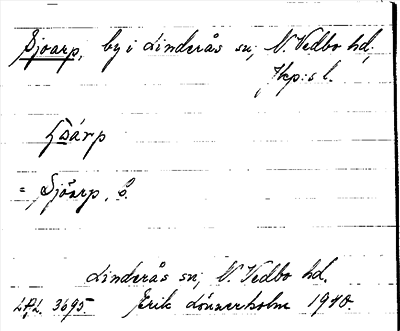 Sjöarp, by i Linderås sn, N. Vedbo hd,
Jkp:s l.
sárp
= Sjöarp, S.
Linderås sn, N. Vedbo hd.
3695. Erik Lönnerholm 1940.